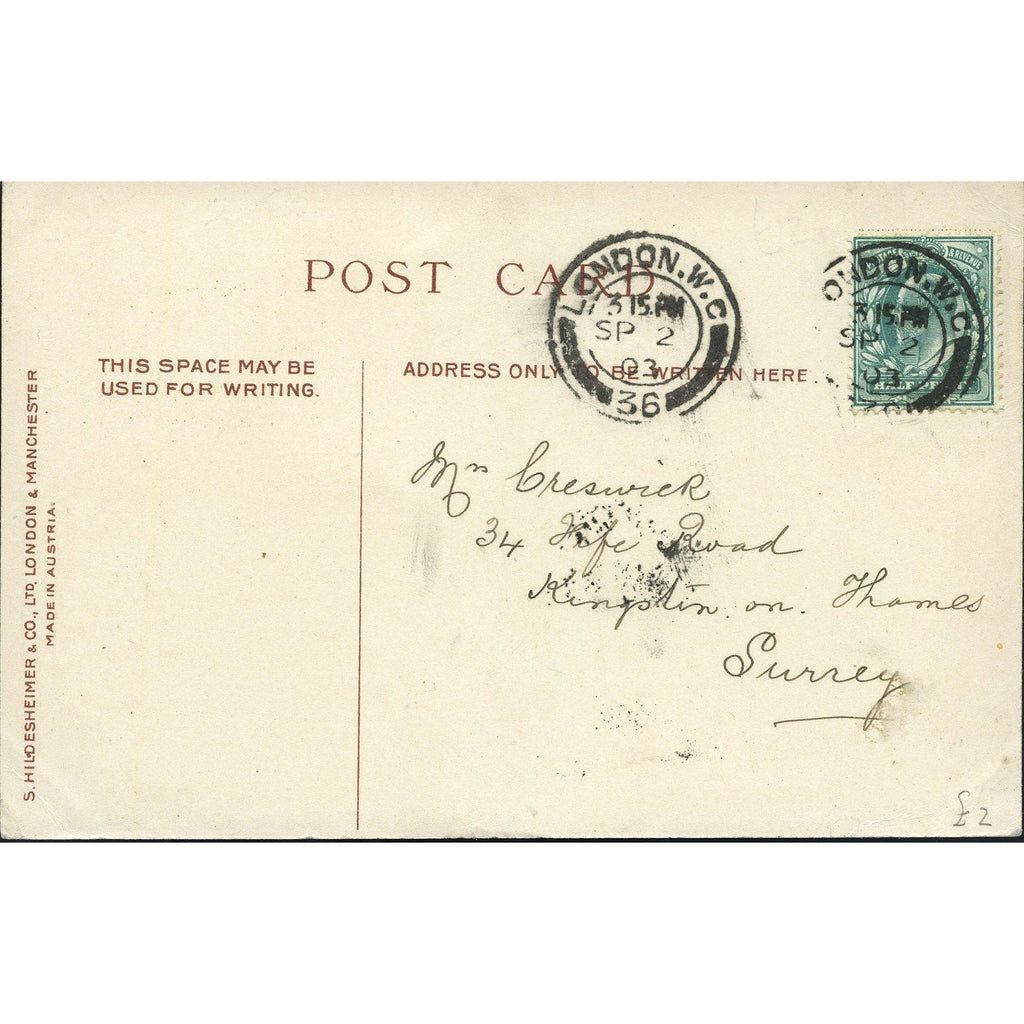 POST CARD
THIS SPACE MAY BE
USED FOR WRITING.
ADDRESS ONLY TO BE WRITTEN HERE.
LONDON.W.C
3 15.PM
SP 2
03
36
& REVENUE
LONDON.W.C
3 15.PM
SP 2
03
Mrs Creswick
34 Fife Road
Kingston on. Thames
Surrey
S. HILDESHEIMER & CO., LTD. LONDON & MANCHESTER
MADE IN AUSTRIA.
£2